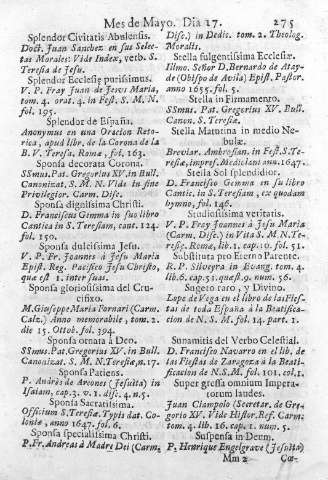 Mes de Mayo. Dia 17. 275
Splendor Civitatis Abulensis.
Doct. Juan Sanchez en sus Selectas
Morales: Vide Index, verb. S.
Teresia de Jesu.
Splendor Ecclesiæ purissimus.
V. P. Fray Juan de Jesus Maria,
tom. 4. orat. 4. in Fest. S. M. N.
fol. 195.
Splendor de España.
Anonymus en una Oracion Retorica,
apud libr. de la Corona de la
B. V. Teresa, Rome, fol. 163.
Sponsa decorata Corona.
SSmus. Pat. Gregorius XV. in Bull.
Canonizat. S. M. N. Vide in fine
Privilegior. Carm. Disc.
Sponsa dignissima Christi.
D. Franciscus Gemma in suo libro
Cantica in S. Teresiam, cant. 124.
fol. 150.
Sponsa dulcissima Jesu.
V. P. Fr. Joannes à Jesu Maria
Epist. Reg. Pacifico Jesu Christo,
quæ est 1. inter suas.
Sponsa gloriosissima del Crucifixo.
M. Gioseppe Maria Fornari (Carm.
Calz.) Anno memorabile, tom. 2.
die 15. Ottob. fol. 394.
Sponsa ornata à Deo.
SSmus. Pat. Gregorius XV. in Bull.
Canonizat. S. M. N. Teresiæ, n. 17.
Sponsa Patiens.
P. Andrès de Arcones (Jesuita) in
Isaiam, cap. 3. v. 1. disc. 4. n. 5.
Sponsa Sacratissima.
Officium S. Teresiæ. Typis dat. Coloniæ,
anno 1647. fol. 6.
Sponsa specialissima Christi.
P. Fr. Andreas à Madre Dei (Carm.
Disc.) in Dedic. tom. 2. Theolog.
Moralis.
Stella fulgentissima Ecclesiæ.
Illmo. Señor D. Bernardo de Atayde
(Obispo de Avila) Epist. Pastor.
anno 1655. fol. 5.
Stella in Firmamento.
SSmus. Pat. Gregorius XV. Bull.
Canon. S. Teresiæ.
Stella Matutina in medio Nebulæ.
Breviar. Ambrosian. in Fest. S. Teresiæ,
impres. Mediclani ann. 1647.
Stella Sol splendidior.
D. Francisco Gemma en su libro
Cantic. in S. Teresiam, ex quodam
hymno, fol. 146.
Studiosissima veritatis.
V. P. Frey Joannes à Jesu Maria
(Carm. Disc.) in Vita S. M. N. Teresiæ,
Rome, lib. 1. cap. 10. fol. 51.
Substituta pro Eterno Parente.
R. P. Silveyra in Evang. tom. 4.
lib. 6. cap. 31. quæst. 9. num. 56.
Sugeto raro, y Divino.
Lope de Vega en el libro de las Fiestas
de toda España à la Beatificacion
de N. S. M. fol. 14. part. 1.
Sunamitis del Verbo Celestial.
D. Francisco Navarro en el lib. de
las Fiestas de Zaragoza à la Beatificacion
de N. S. M. fol. 101. col. 1.
Super gressa omnium Imperatorum
laudes.
Juan Ciampolo (Secretar. de Gregorio
XV. Vide Histor. Ref. Carm:
tom. 4. lib. 16. cap. 1. num. 5.
Suspensa in Deum.
P. Henrique Engelgrave (Jesuita)
Mm 2 Cœ-